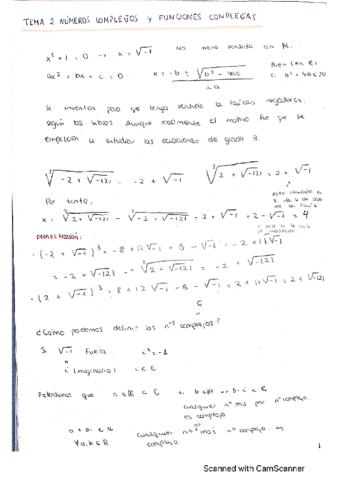 TEMA 2 NÚMEROS COMPLEJOS Y FUNCIONES COMPLEJAS
x² + 1 = 0 → x = √-1 No tiene sentido en ℝ.
ax² + bx + c = 0 x = -b ± √b² - 4ac
2a
Se inventan para que tenga sentido la raíces negativas,
según los libros. Aunque realmente el motivo fue que se
empezaron a estudiar las ecuaciones de grado 3.
∛-2 + √-121 = -2 + √-1 ∛2 + √-121 = 2 + √-1
Por tanto,
x = ∛2 + √-121 - ∛-2 + √-121 = 2 + √-1 + 2 - √-1 = 4
Demostración:
· (-2 + √-1)³ = -8 + 12√-1 + 6 - √-1 = -2 + 11√-1
= -2 + √-121 → ∛-2 + √-121 = -2 + √-1
· (2 + √-1)³ = 8 + 12√-1 - 6 - √-1 = 2 + 11√-1 = 2 + √-121
ℂ
¿Cómo podemos definir los nºs complejos?
Si √-1 fuera... i² = -1
i (imaginario) i ∈ ℂ
b ∈ ℝ → b·i ∈ ℂ
cualquier nº real por nº complejo
es complejo
a + bi ∈ ℂ
∀a,b ∈ ℝ
cualquier nº real más nº complejo es
complejo.
1
Scanned with CamScanner